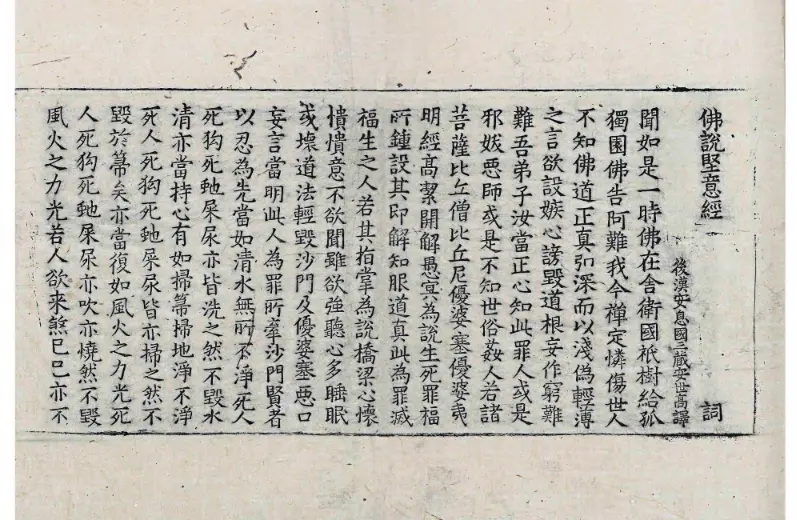 佛說堅意經 詞
後漢安息國三藏安世高譯
聞如是一時佛在舍衛國祇樹給孤
獨園佛告阿難我今禪定憐傷世人
不知佛道正真弘深而以淺偽輕薄
之言欲設嫉心謗毀道根妄作窮難
難吾弟子汝當正心知此罪人或是
邪妭惡師或是不知世俗姦人若諸
菩薩比丘僧比丘尼優婆塞優婆夷
明經高潔開解愚冥為說生死罪福
所鍾設其即解知服道真此為罪滅
福生之人若其指掌為說橋梁心懷
憒憒意不欲聞雖欲強聽心多睡眠
或壞道法輕毀沙門及優婆塞惡口
妄言當明此人為罪所牽沙門賢者
以忍為先當如清水無所不淨死人
死狗死虵屎尿亦皆洗之然不毀水
清亦當持心有如掃箒掃地淨不淨
死人死狗死虵屎尿皆亦掃之然不
毀於箒矣亦當復如風火之力光死
人死狗死虵屎尿亦吹亦燒然不毀
風火之力光若人欲來煞己己亦不